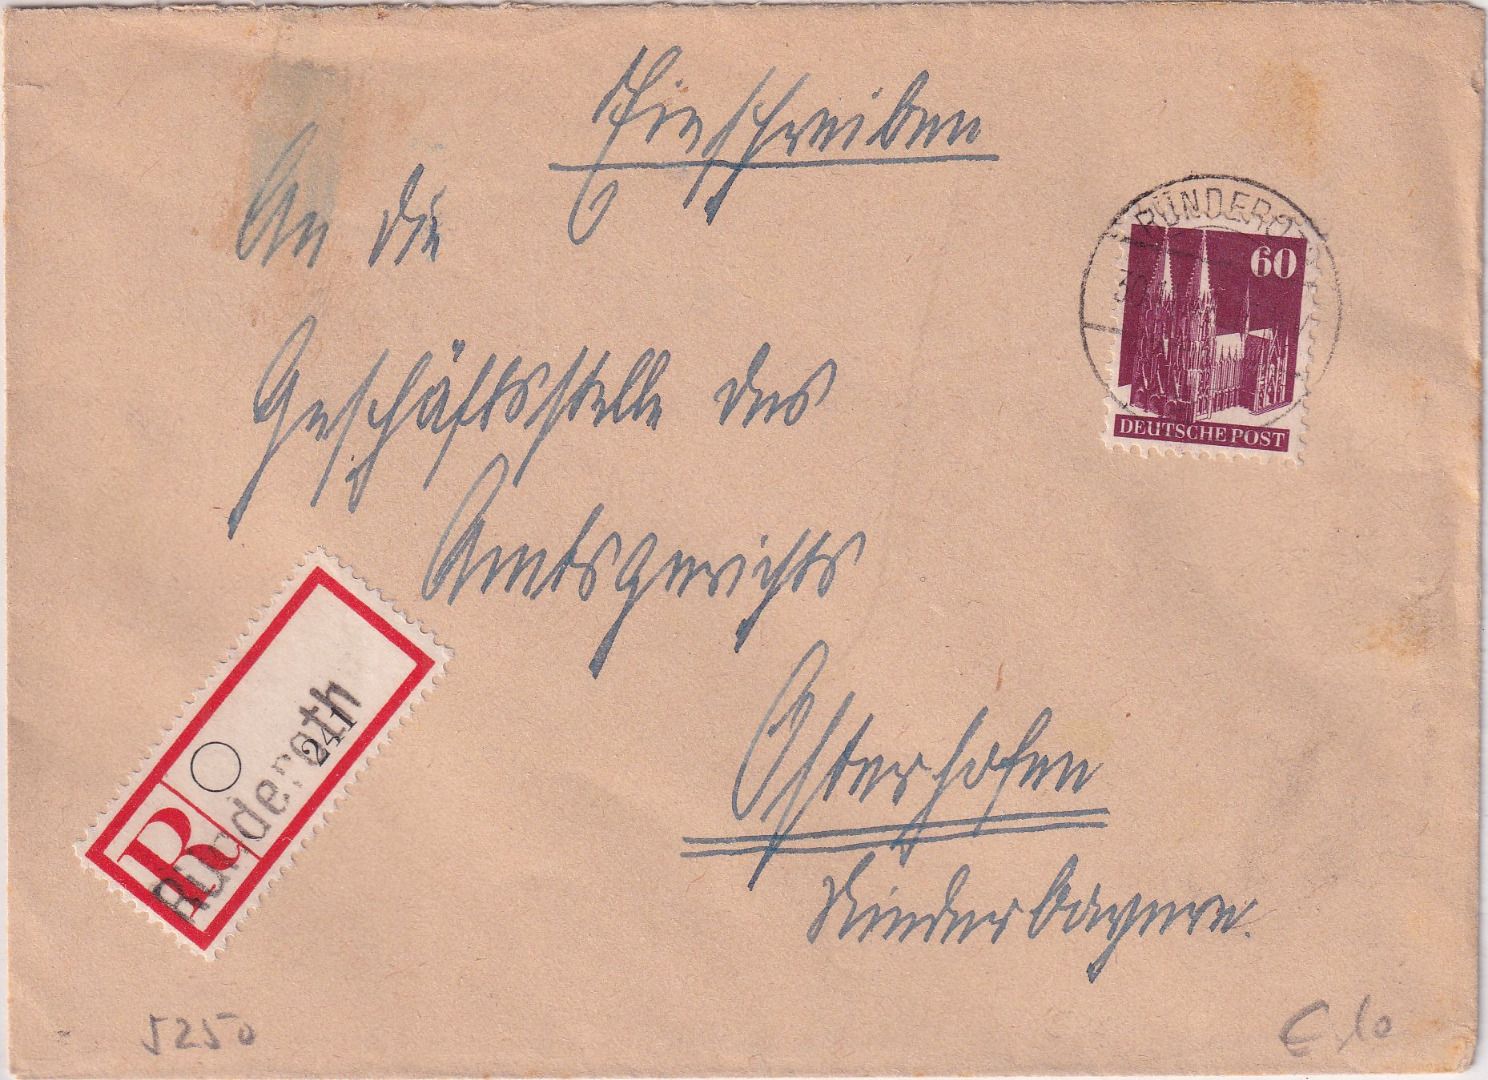 Einschreiben
An die
Geschäftsstelle des
Amtsgerichts
Osterhofen
Niederbayern.
RÜNDEROTH
30
60
DEUTSCHE POST
R
Ründeroth
241
5250
€ 10